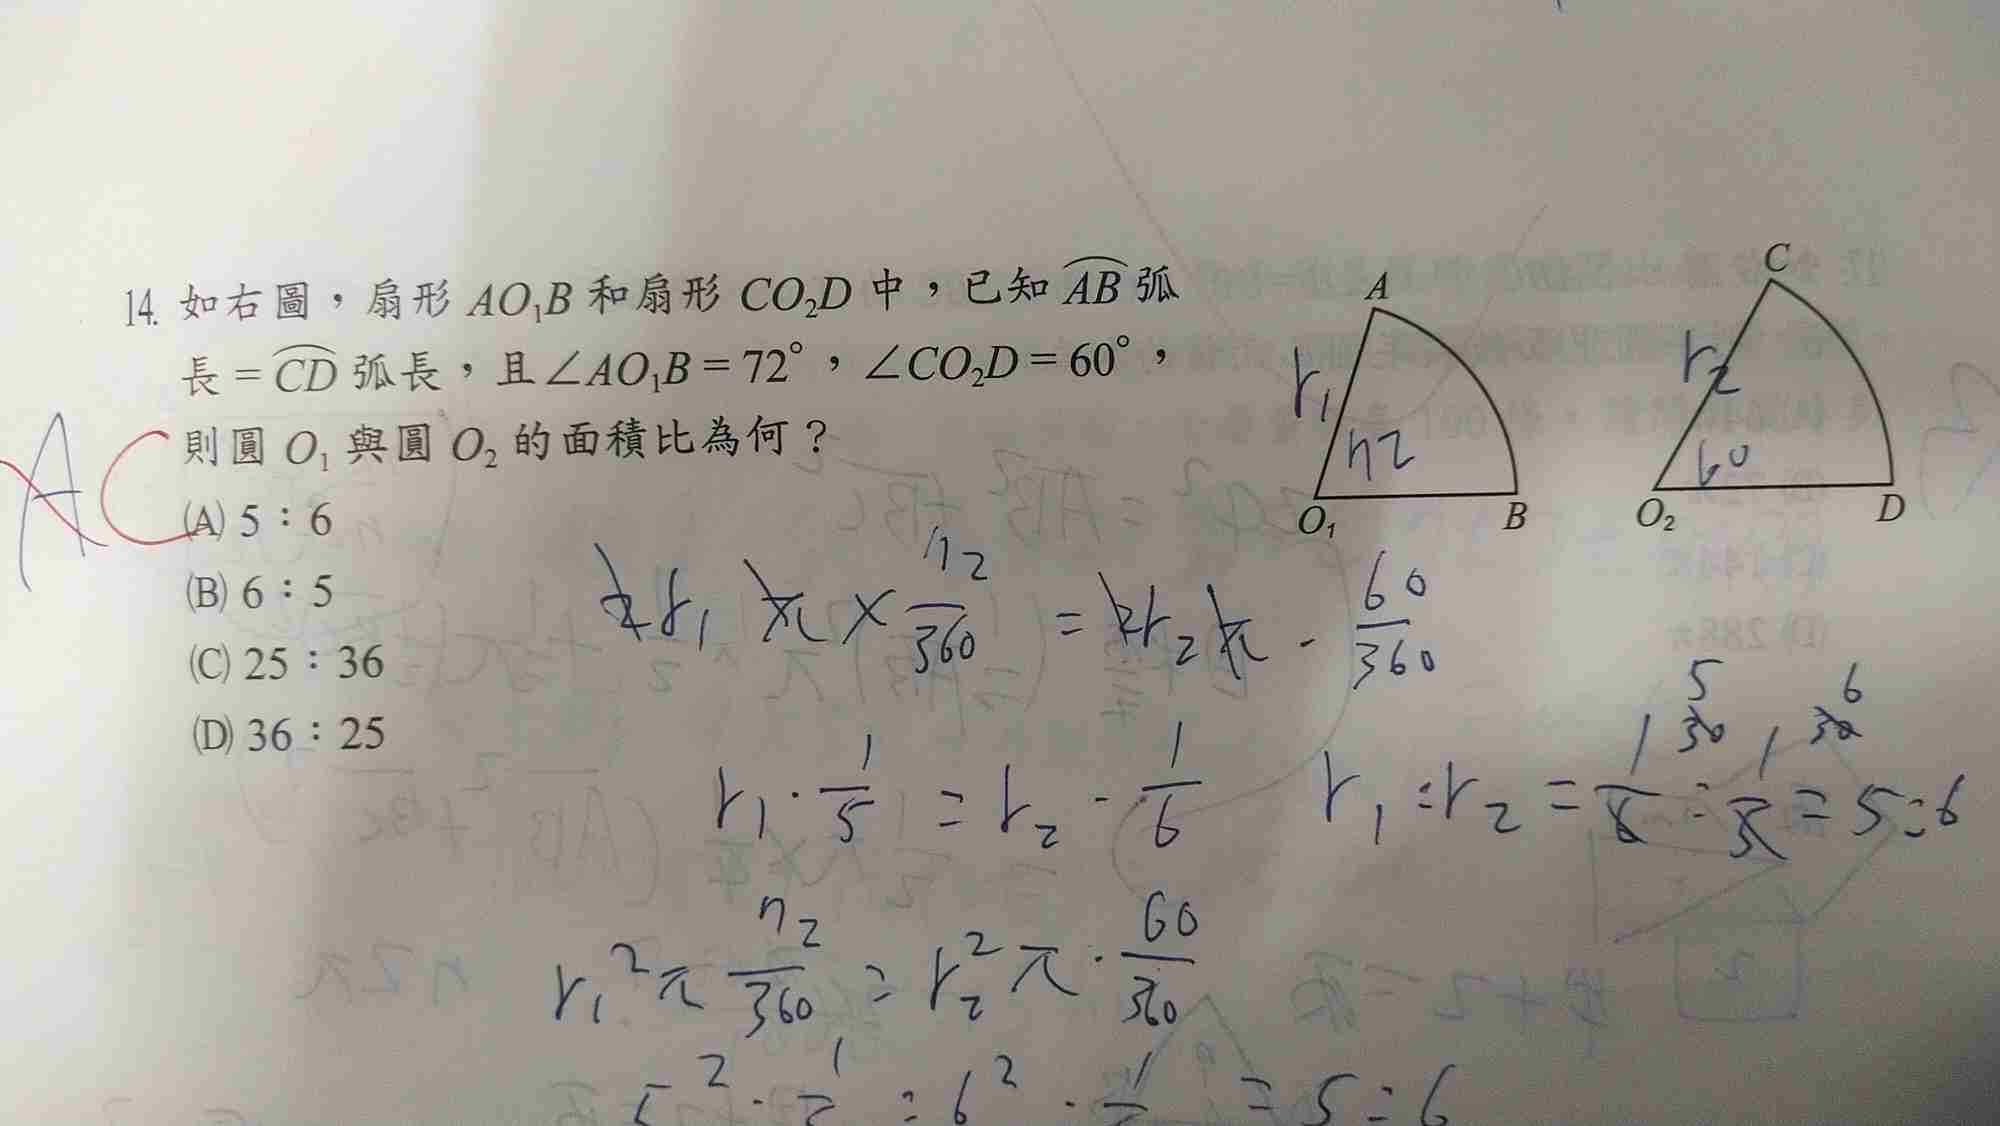 14. 如右圖，扇形 AO₁B 和扇形 CO₂D 中，已知 AB 弧
長 = CD 弧長，且∠AO₁B = 72°，∠CO₂D = 60°，
則圓 O₁ 與圓 O₂ 的面積比為何？
(A) 5：6
(B) 6：5
(C) 25：36
(D) 36：25
A
C
A
O₁
B
r₁
72
C
O₂
D
r₂
60
2r₁π × 72/360 = 2r₂π · 60/360
r₁ · 1/5 = r₂ · 1/6
r₁ : r₂ = 1/6 : 1/5 = 5 : 6
30 30
5 6
r₁²π 72/360 = r₂²π · 60/360
5² · 1 : 6² · 1 = 5 : 6